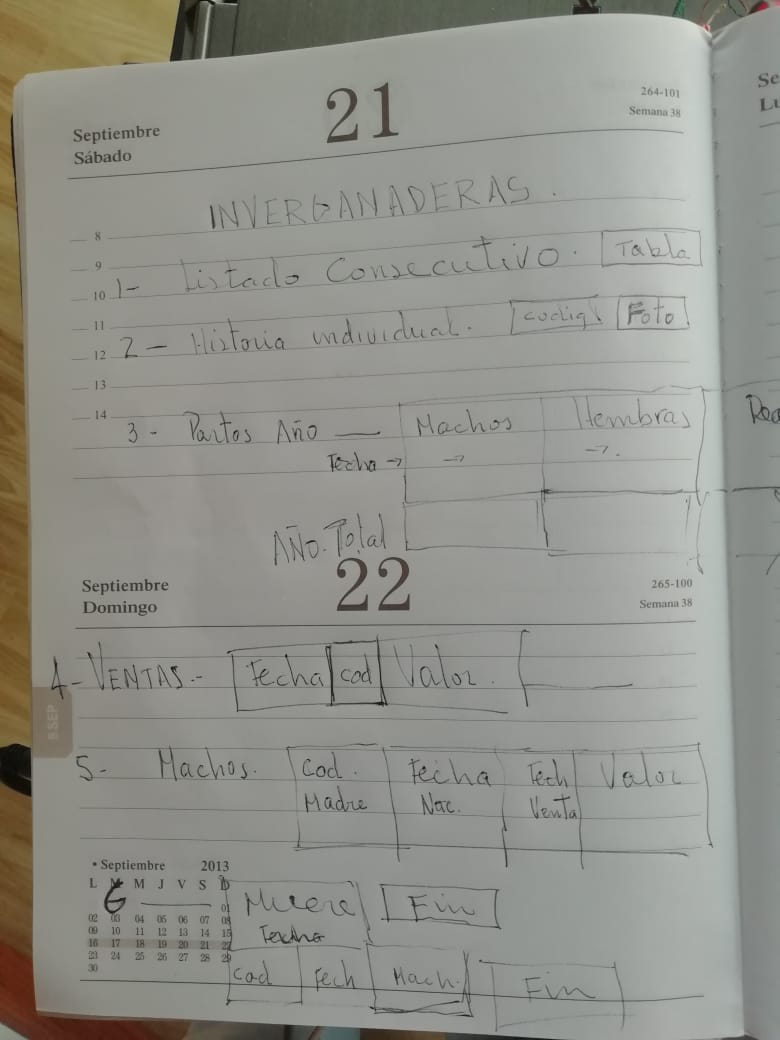 Septiembre
Sábado
21
264-101
Semana 38
INVERGANADERAS.
8
9
10 1- Listado Consecutivo. Tabla
11
12 2- Historia individual. codig Foto
13
14
3- Partos Año — Machos Hembras
Fecha → → →.
AÑO. Total
Septiembre
Domingo
22
265-100
Semana 38
4- VENTAS.- Fecha cod Valor.
5- Machos. Cod. Fecha Fech Valor
Madre Nac. Venta
SEP
• Septiembre 2013
L M M J V S D
01
02 03 04 05 06 07 08
09 10 11 12 13 14 15
16 17 18 19 20 21 22
23 24 25 26 27 28 29
30
6
Muere Fin
Fecha
Cod Fech Mach. Fin
Se
Lu